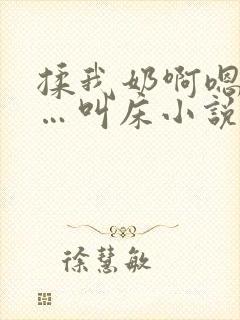 揉我奶啊嗯
…叫床小說
徐慧敏